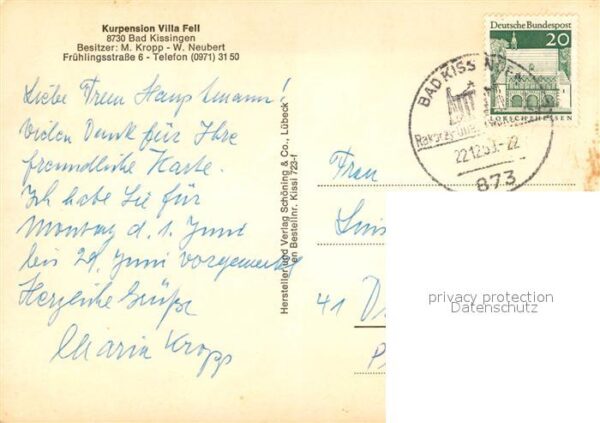 Kurpension Villa Fell
8730 Bad Kissingen
Besitzer: M. Kropp - W. Neubert
Frühlingsstraße 6 - Telefon (0971) 31 50
Liebe Frau Hauptmann!
Vielen Dank für Ihre
freundliche Karte.
Ich habe Sie für
Montag d. 1. Juni
bis 29. Juni vorgemerkt
Herzliche Grüße
Maria Kropp
Hersteller und Verlag Schöning & Co., Lübeck
Bestellnr. Kissi 723-f
Deutsche Bundespost
20
LORSCH/HESSEN
BAD KISSINGEN
22.12.69.-22
873
Frau
41 D
privacy protection
Datenschutz